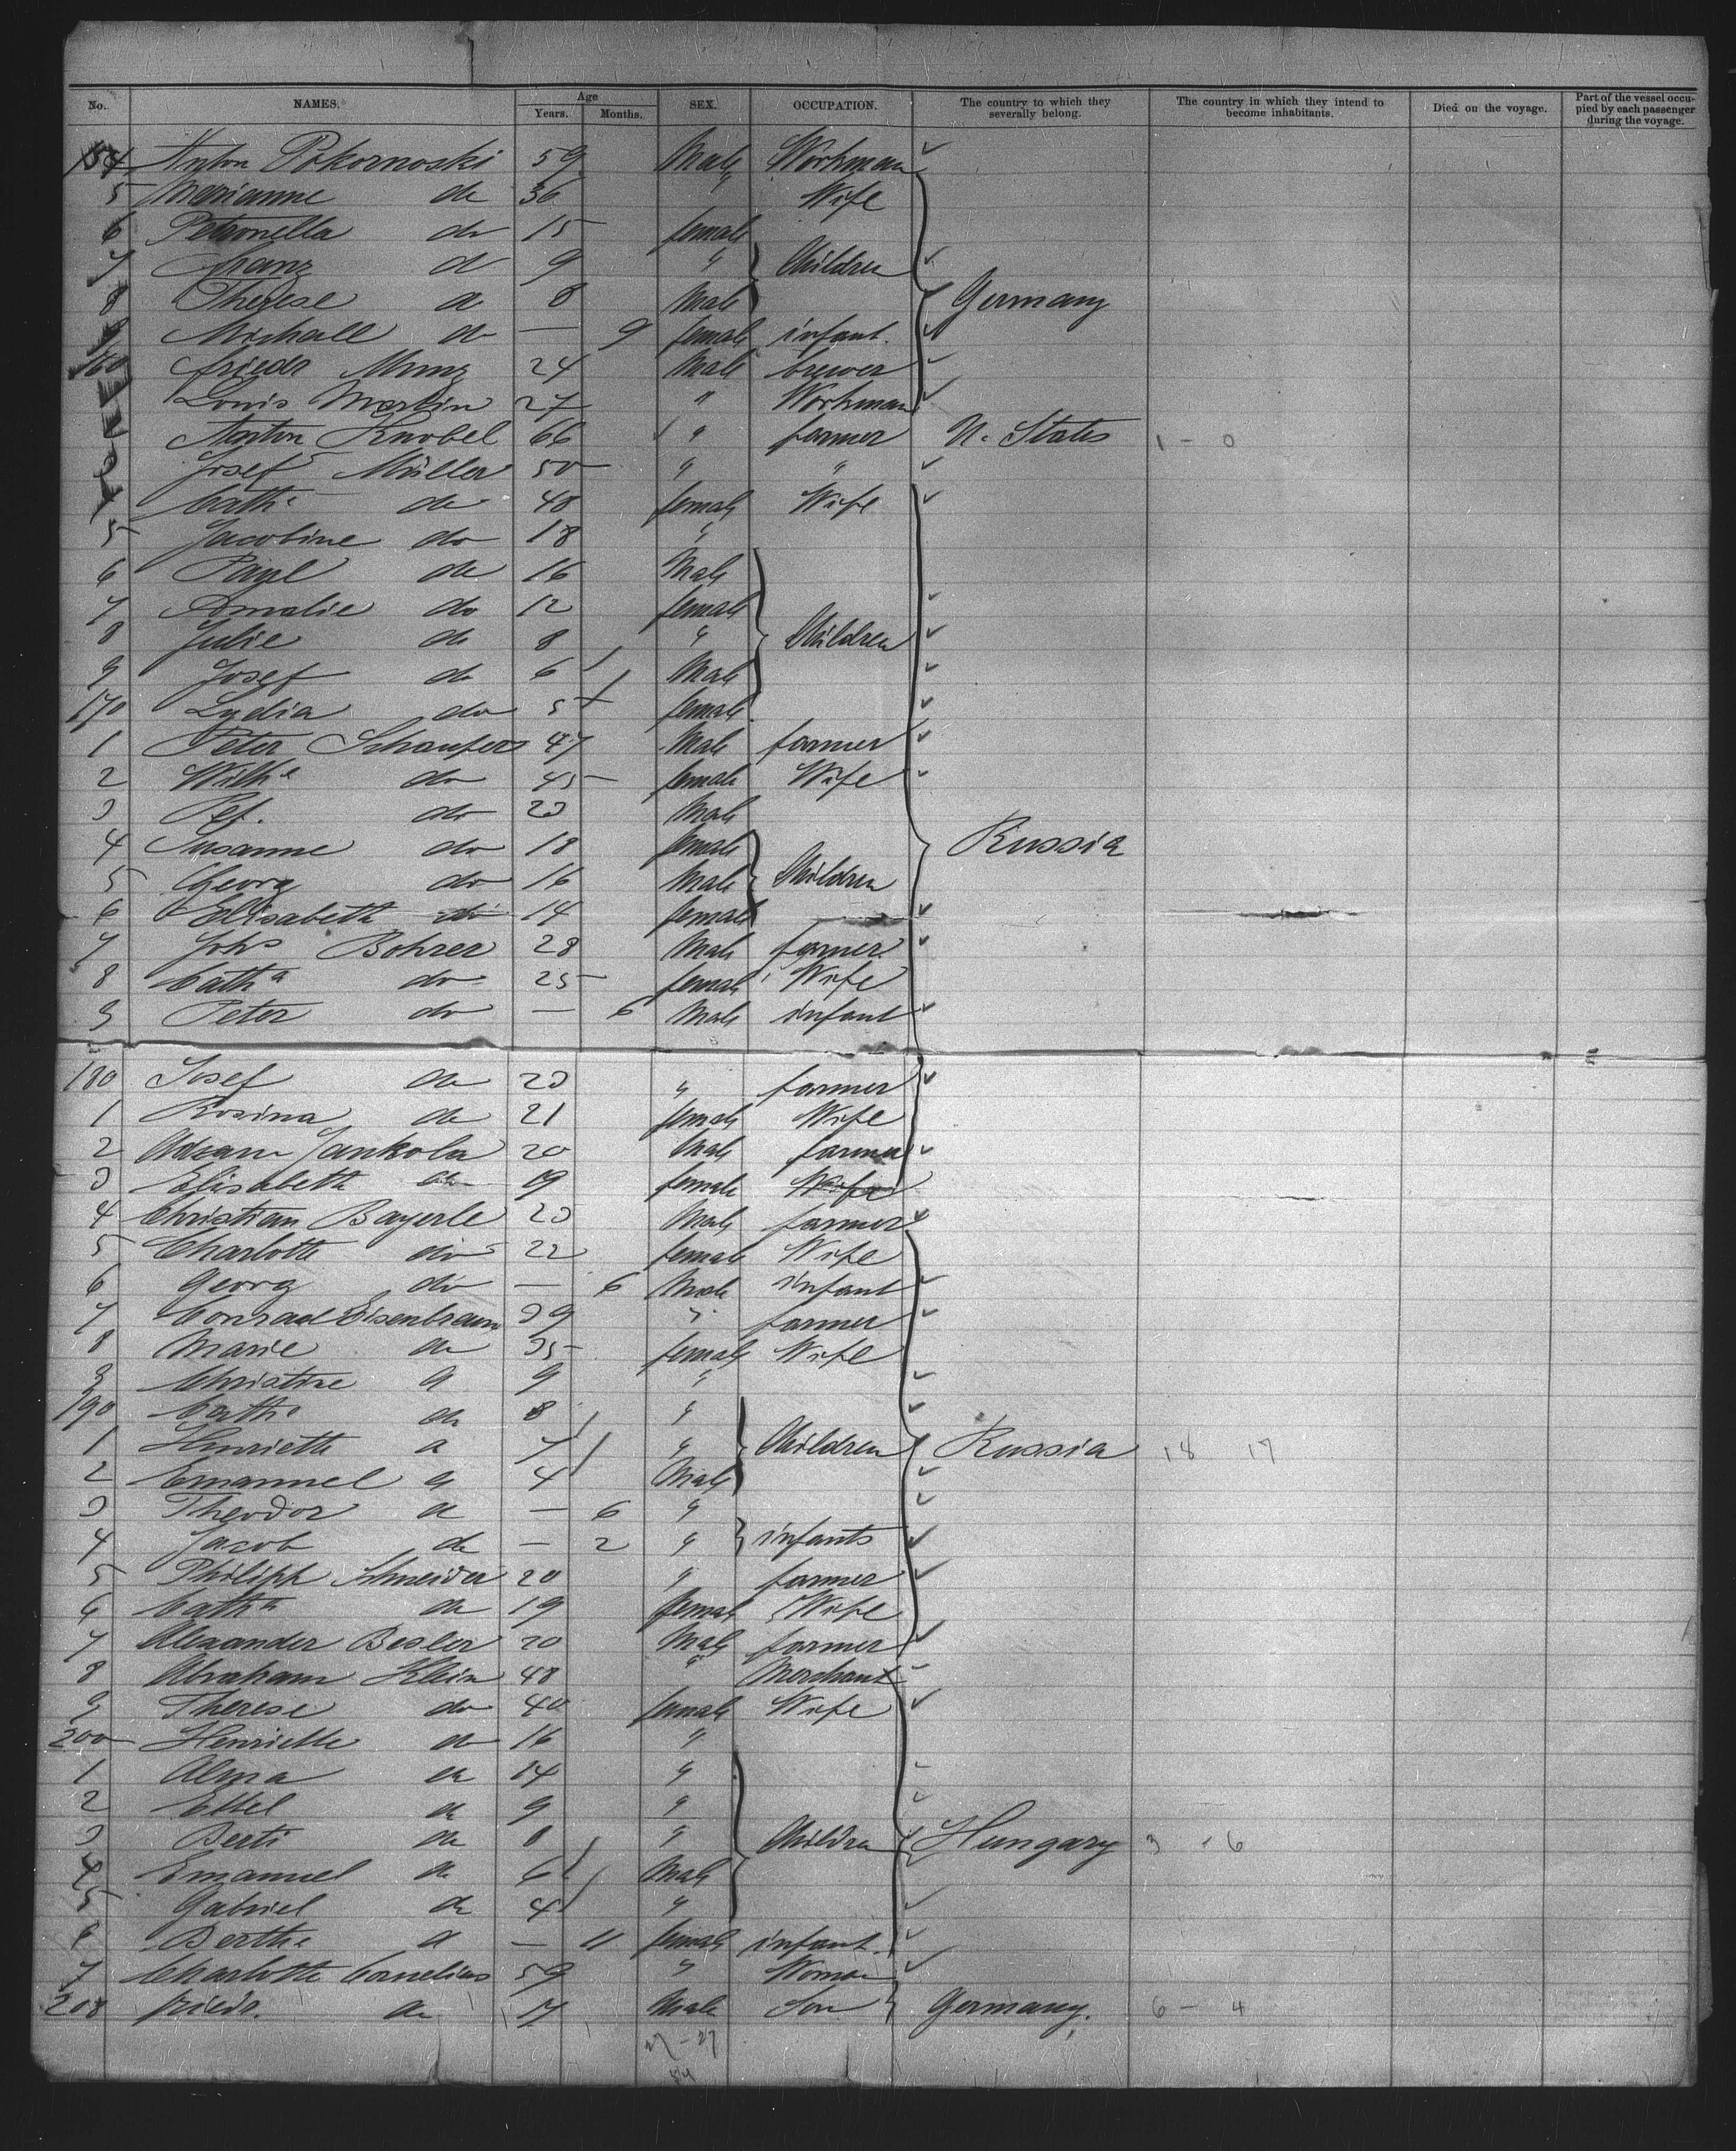 No. NAMES. Age Years. Months. SEX. OCCUPATION. The country to which they severally belong. The country in which they intend to become inhabitants. Died on the voyage. Part of the vessel occupied by each passenger during the voyage.
154 Anton Pokornoski 59 Male Workman
5 Marianne do 36 " Wife
6 Petronella do 15 female
7 Franz do 9 " Children
8 Therese do 8 Male Germany
9 Michall do — 9 female infant.
160 Friedr Munz 24 Male brewer
Louis Martin 27 " Workman
Anton Knobel 66 " farmer U. States 1 - 0
3 Josef Müller 50 " "
4 Cath. do 48 female Wife
5 Jacobine do 18 "
6 do 16 Male
7 Amalie do 12 female
8 Julie do 8 " Children
9 Josef do 6 Male
170 Lydia do 5 female
1 Peter 47 Male farmer
2 Wilh. do 45 female Wife
3 Pet. do 23 Male
4 Susanne do 18 female Russia
5 Georg do 16 Male Children
6 Elisabeth do 14 female
7 Johs Bohrer 28 Male farmer
8 Catha do 25 female Wife
9 Peter do — 6 Male infant
180 Josef do 23 " farmer
1 Rosina do 21 female Wife
2 Adam Jankola 20 Male farmer
3 Elisabeth do 19 female Wife
4 Christian Bayerle 23 Male farmer
5 Charlotte do 22 female Wife
6 Georg do — 6 Male infant
7 Conrad Eisenbraun 39 " farmer
8 Marie do 35 female Wife
9 Christine do 9 "
190 Cath. do 8 "
1 Henriette do 7 " Children Russia 18 17
2 Emanuel do 4 Male
3 Theodor do — 6 "
4 Jacob do — 2 " infants
5 Philipp Schneider 20 " farmer
6 Catha do 19 female Wife
7 Alexander Besler 20 Male farmer
8 Abraham Klein 48 " Merchant
9 Therese do 40 female Wife
200 Henriette do 16 "
1 Alma do 14 "
2 Ettel do 9 "
3 Berti do 8 " Children Hungary 3 - 6
4 Emanuel do 6 Male
5 Gabriel do 4 "
6 Bertha do — 11 female infant.
7 Charlotte Cornelius 59 " Woman
208 Friedr. do 17 Male Son Germany. 6 - 4
27 - 27
54